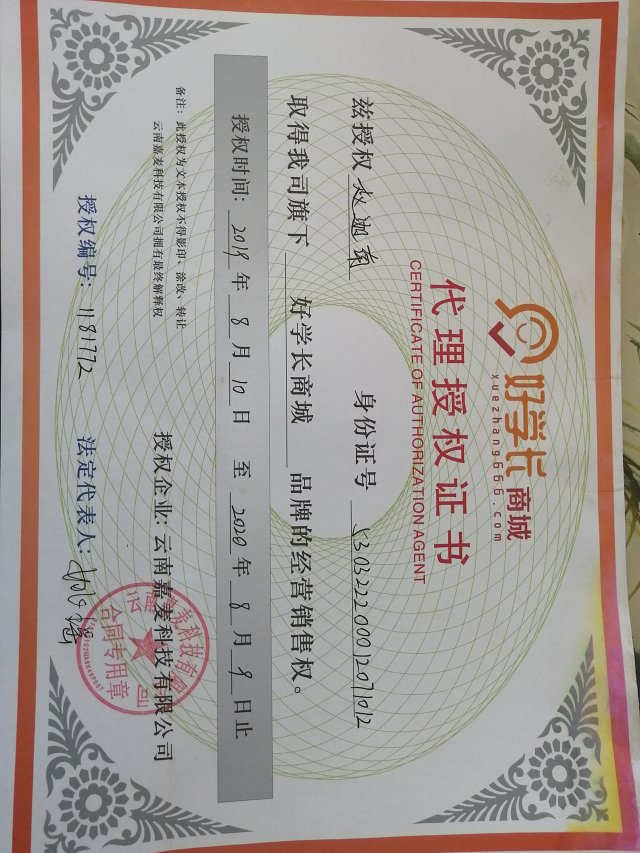 好学长商城
xuezhang666.com
代理授权证书
CERTIFICATE OF AUTHORIZATION AGENT
兹授权 赵迦南 身份证号 530322200012071012
取得我司旗下 好学长商城 品牌的经营销售权。
授权时间: 2019 年 8 月 10 日 至 2020 年 8 月 9 日止
备注: 此授权为文本授权不得影印、涂改、转让
云南嘉麦科技有限公司拥有最终解释权
授权企业: 云南嘉麦科技有限公司
云南嘉麦科技有限公司
合同专用章
授权编号: 1181772 法定代表人: 姚瑶